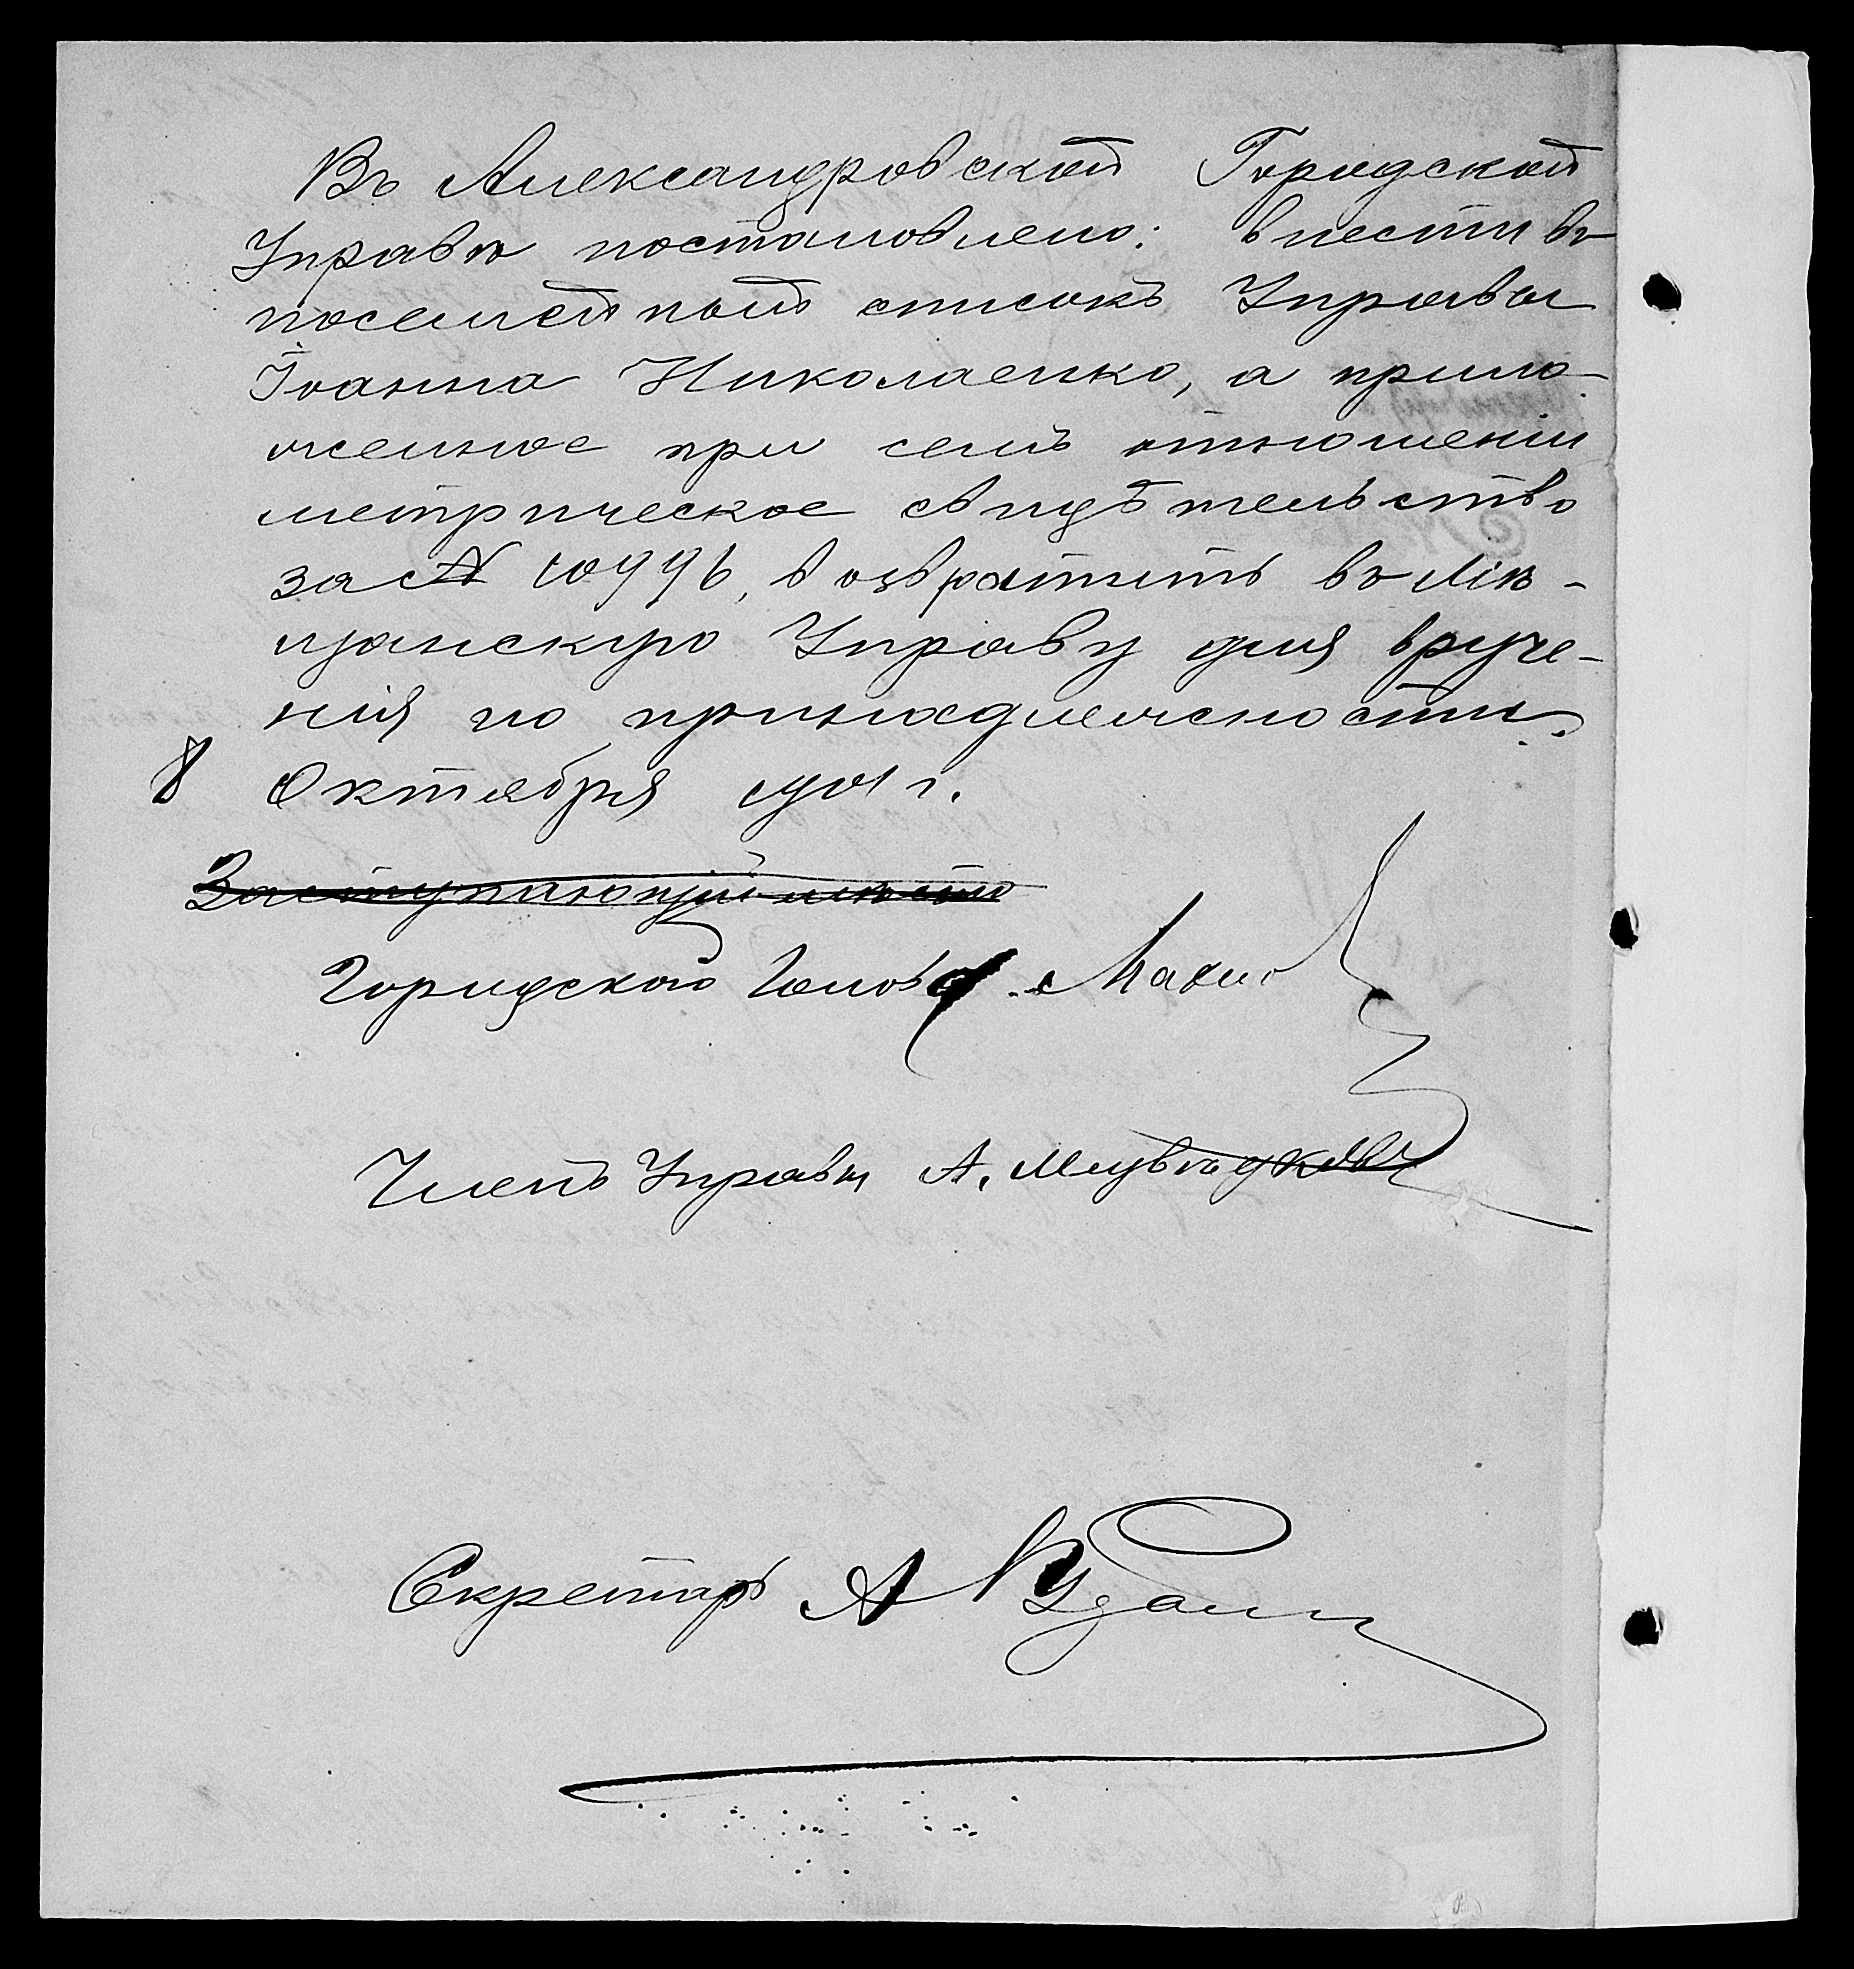 Въ Александровской Городской
Управѣ постановлено: внести въ
посемейный списокъ Управы
Іоанна Николаенко, а прило-
женное при семъ отношеніи
метрическое свидѣтельство
за № 10996, возвратить въ Мѣ-
щанскую Управу для вруче-
нія по принадлежности.
8 Октября 1901 г.
Заступающій мѣсто
Городской Голова
Членъ Управы А.
Секретарь А